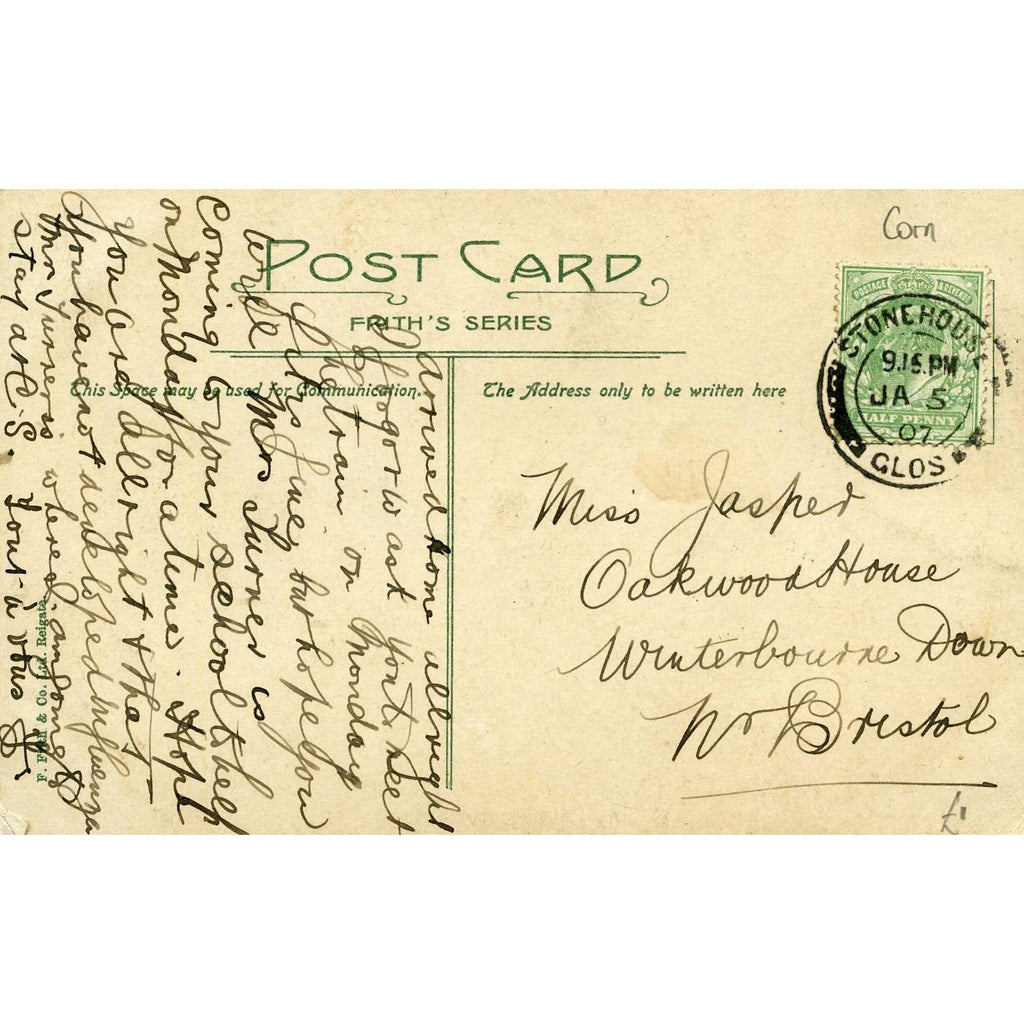 Corn
POST CARD
FRITH'S SERIES
This Space may be used for Communication.
The Address only to be written here
POSTAGE & REVENUE
HALF PENNY
STONEHOUSE
9.15.PM
JA 5
07
GLOS
Miss Jasper
Oakwood House
Winterbourne Down
Nr Bristol
£1
Arrived home allright
I forgot to ask you to meet
the train on Monday
if it is fine but hope you
will Mrs Turner is
Coming to your school then
on Monday for a time. Hope
you are allright & that
you have not developed Influenza
Mr Turner is where I am going to
stay at C.S. Tout-à vous
F. Frith & Co. Ltd. Reigate.